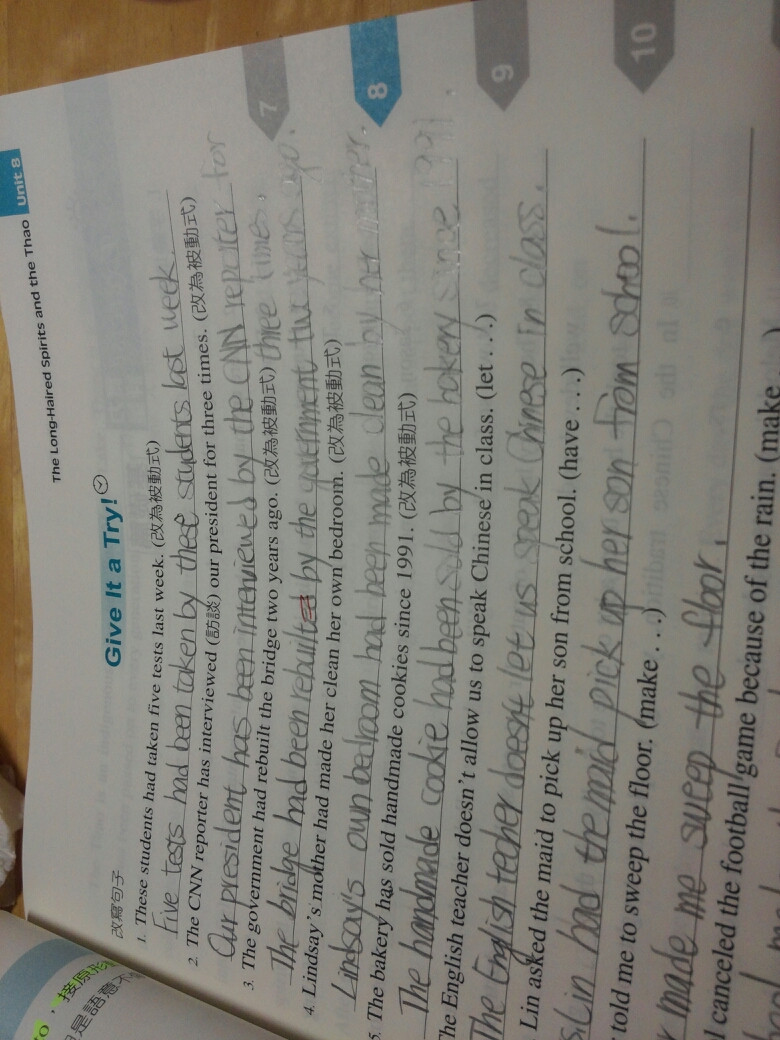 The Long-Haired Spirits and the Thao Unit 8
Give It a Try!
改寫句子
1. These students had taken five tests last week. (改為被動式)
Five tests had been taken by thest students last week
2. The CNN reporter has interviewed (訪談) our president for three times. (改為被動式)
Our president has been interviewed by the CNN reporter for
three times.
3. The government had rebuilt the bridge two years ago. (改為被動式)
The bridge had been rebuilt by the government two years ago.
4. Lindsay's mother had made her clean her own bedroom. (改為被動式)
Lindsay's own bedroom had been made clean by her mother.
5. The bakery has sold handmade cookies since 1991. (改為被動式)
The handmade cookie had been sold by the bakery since 1991.
The English teacher doesn't allow us to speak Chinese in class. (let . . .)
The English techer doesn't let us speak Chinese in class.
Lin asked the maid to pick up her son from school. (have . . .)
Lin had the maid pick up her son from school.
told me to sweep the floor. (make . . .)
made me sweep the floor.
canceled the football game because of the rain. (make
7
8
9
10
接原形
是語意不